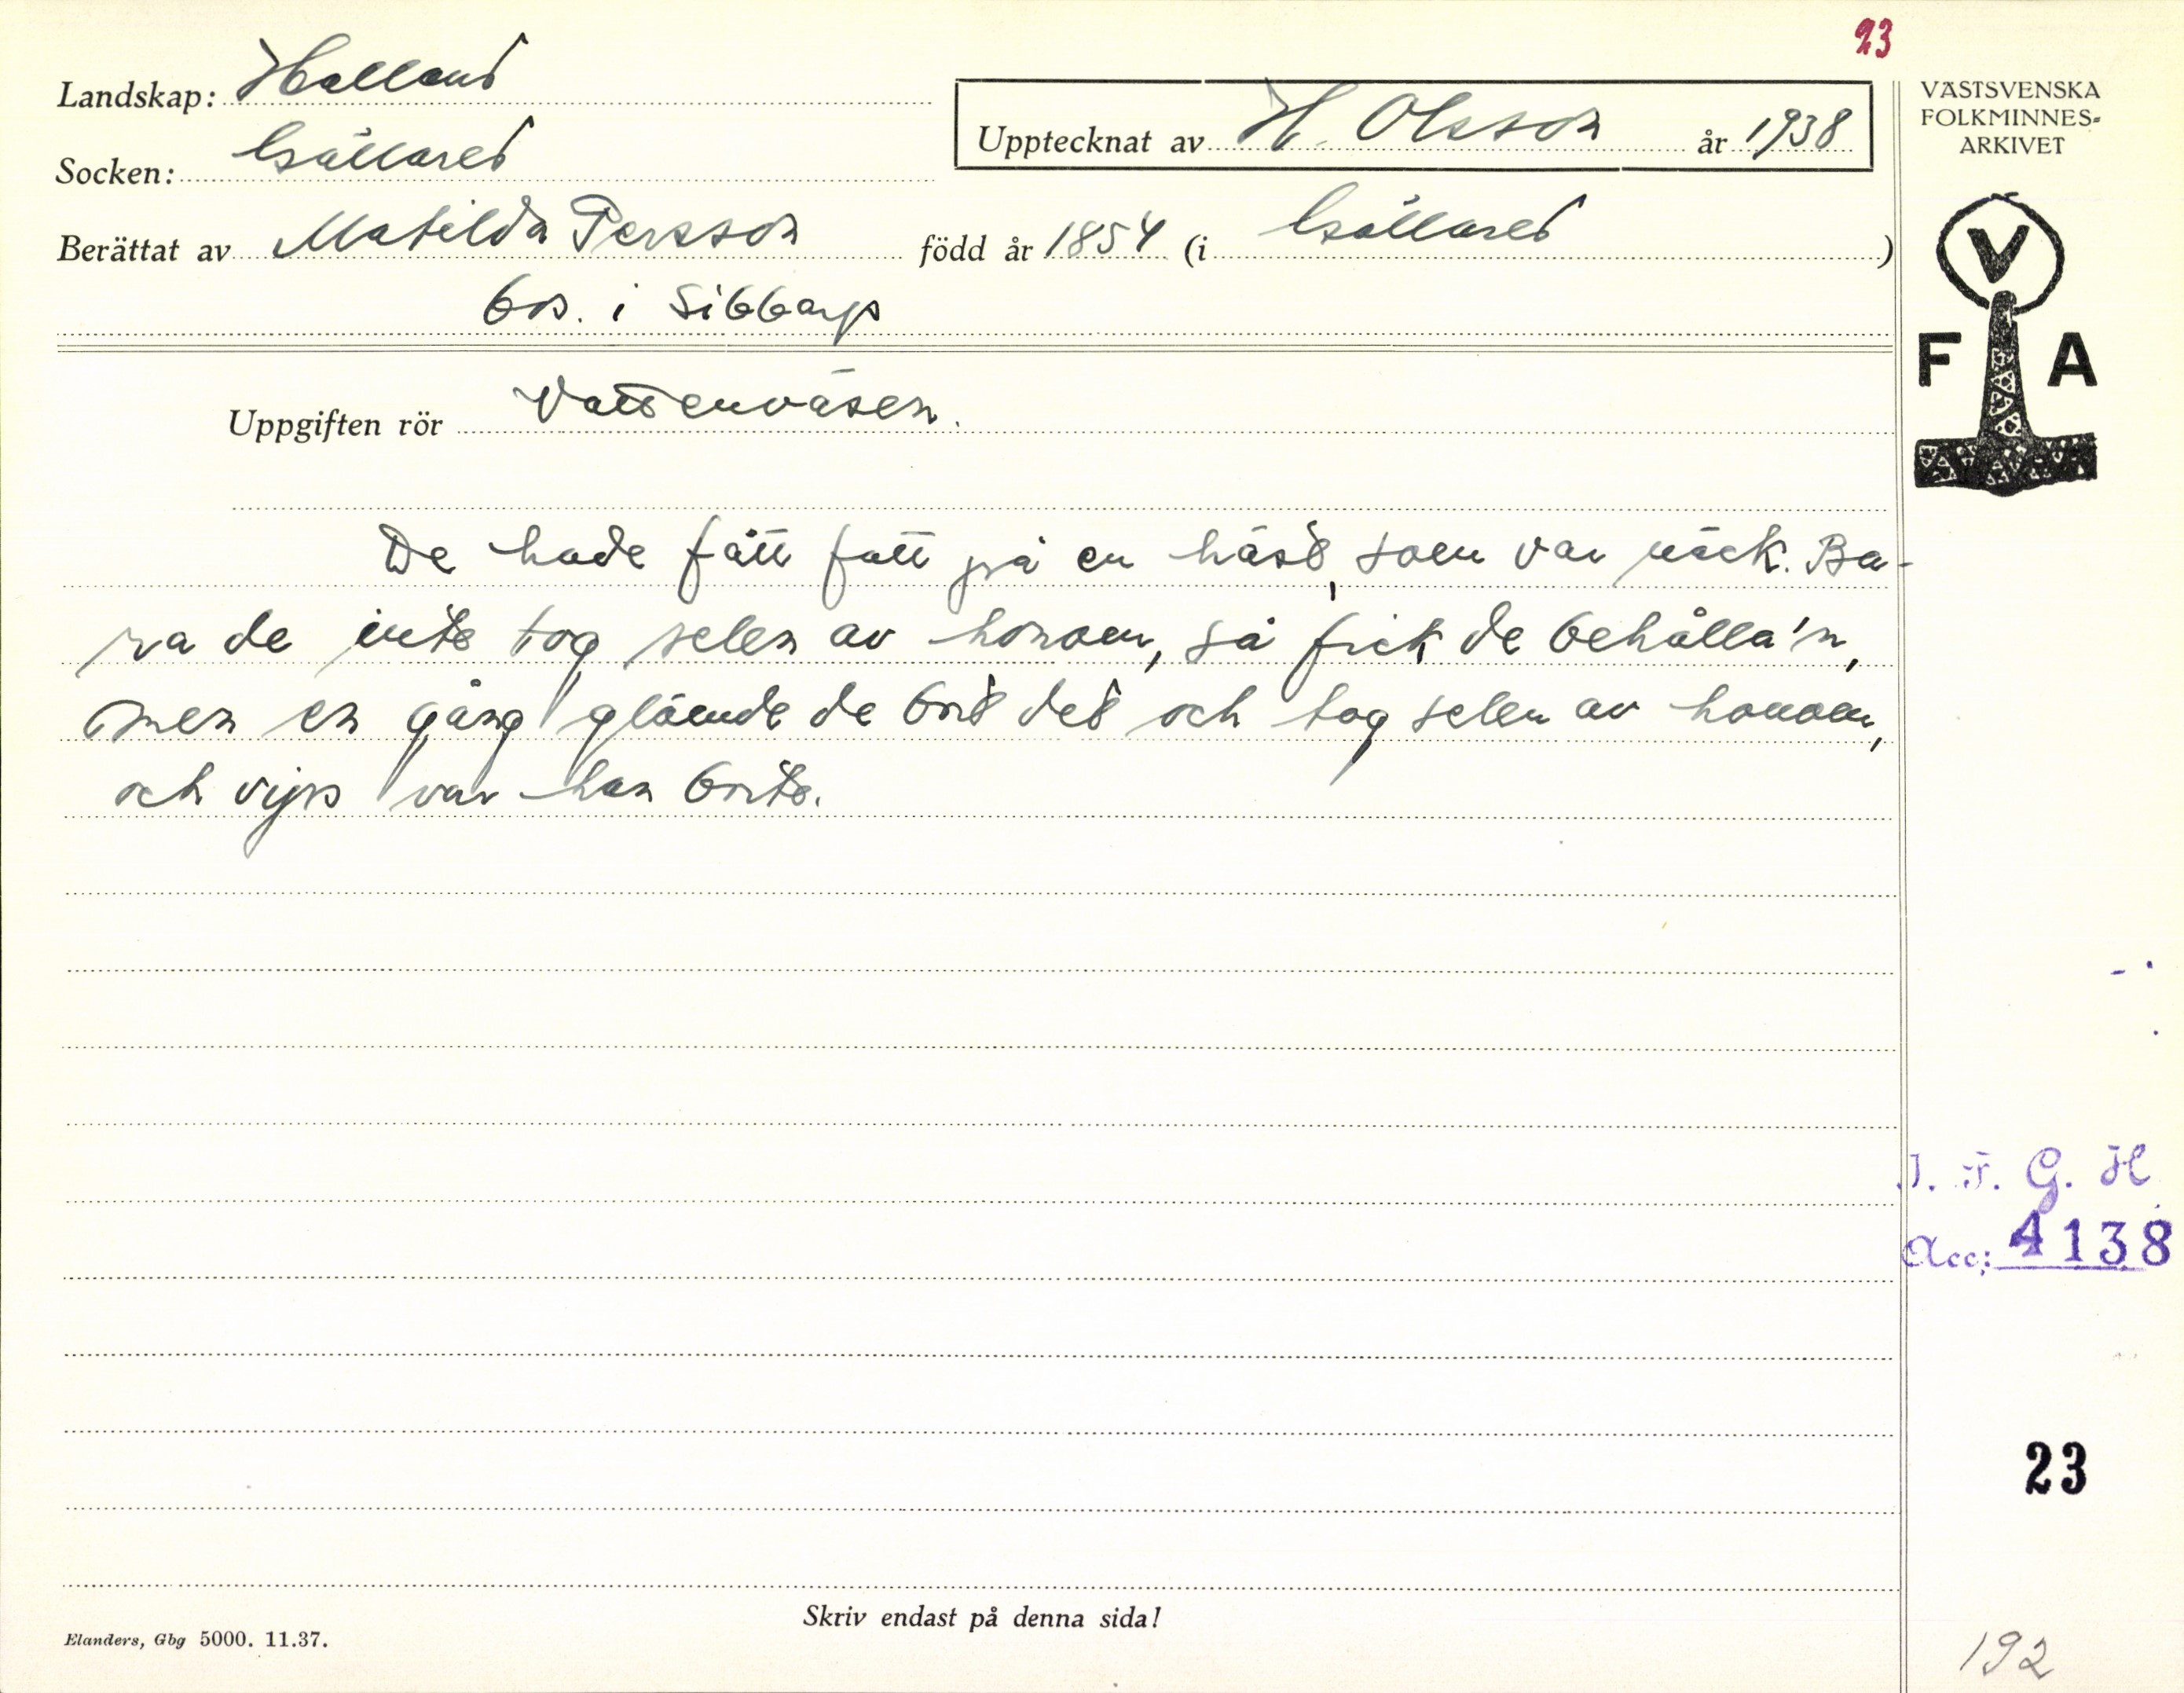 23
Landskap: Halland
Socken: Gällared
Upptecknat av H. Olsson år 1938
Berättat av Matilda Persson född år 1854 (i Gällared)
bos. i Sibbarp
Uppgiften rör Vattenväsen.
De hade fått fatt på en häst, som var näck. Ba-
ra de inte tog selen av honom, så fick de behålla'n,
men en gång glömde de bort det och tog selen av honom,
och vips var han borta.
Skriv endast på denna sida!
Elanders, Gbg 5000. 11.37.
VÄSTSVENSKA
FOLKMINNES-
ARKIVET
V
F A
I. F. G. H.
Acc: 4138
23
192